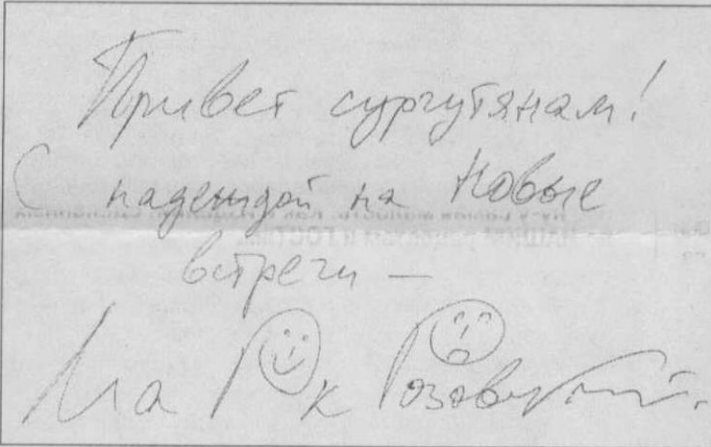 Привет сургутянам!
С надеждой на новые
встречи —
Марк Розовский.